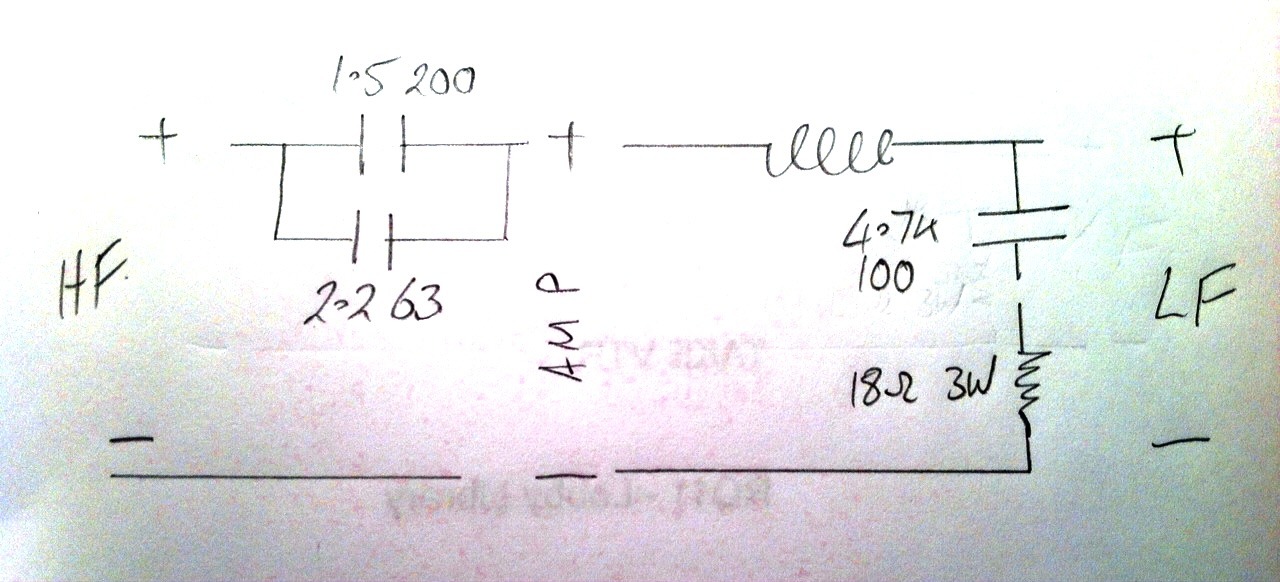 1.5 200
+ + +
4.7u
100
HF.
2.2 63
AMP
LF
18Ω 3W
− − −